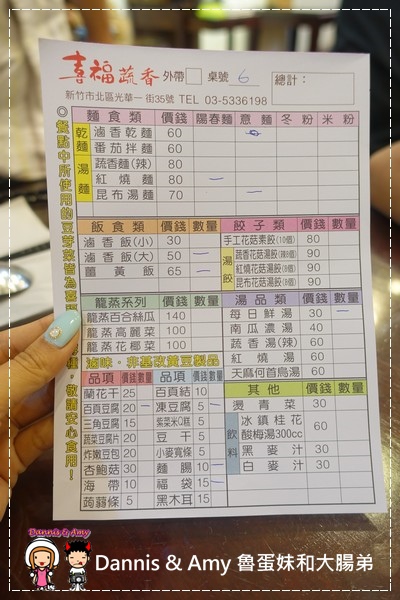 喜福蔬香 外帶 桌號 6 總計：
新竹市北區光華一街35號 TEL 03-5336198
◎餐點中所使用的豆芽菜皆為喜 種 敬請安心食用！
麵食類 價錢 陽春麵 意麵 冬粉 米粉
乾麵 滷香乾麵 60
番茄拌麵 60
湯麵 蔬香麵(辣) 80
紅燒麵 80
昆布湯麵 70
飯食類 價錢 數量
滷香飯(小) 30
滷香飯(大) 50
薑黃飯 65
餃子類 價錢 數量
手工花菇素餃(10個) 80
湯餃 蔬香花菇湯餃(辣8個) 90
紅燒花菇湯餃(8個) 90
昆布花菇湯餃(8個) 90
龍蒸系列 價錢 數量
龍蒸百合絲瓜 140
龍蒸高麗菜 100
龍蒸花椰菜 100
湯品類 價錢 數量
每日鮮湯 30
南瓜濃湯 40
蔬香湯(辣) 60
紅燒湯 60
天麻何首烏湯 60
滷味。非基改黃豆製品
品項 價錢 數量 品項 價錢 數量
蘭花干 25 百頁結 10
百頁豆腐 20 凍豆腐 5
三角豆腐 15 紫菜米Q糕 5
蔬菜豆腐片 20 豆干 5
炸嫩豆包 20 小麥寬條 5
杏鮑菇 30 麵腸 10
海帶 10 福袋 15
蒟蒻條 5 黑木耳 15
其他 價錢 數量
燙青菜 30
飲料 冰鎮桂花酸梅湯300cc 60
黑麥汁 30
白麥汁 30
Dannis & Amy
Dannis & Amy 魯蛋妹和大腸弟